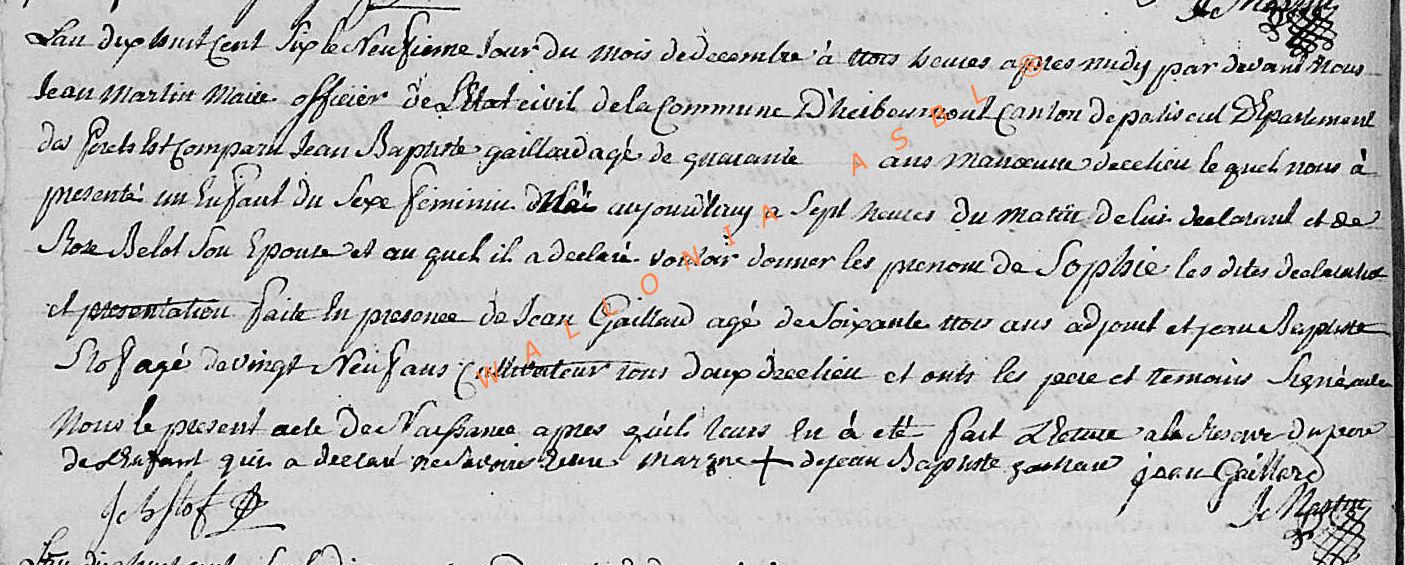 J c Martin
L'an dix huit Cent Six le Neufieme Jour du mois de decembre à trois heures apres midy par devant Nous
Jean Martin Maire officier de L'Etat civil de la Commune D'heibeumont Canton de paliseul Département
des forets Est Comparu Jean Baptiste gaillard agé de quarante ans manoeuvre de ce lieu le quel nous à
presenté un Enfant du Sexe féminin Née aujourd'huy a Sept heures du matin de lui declarant et de
Rose Belot Son Epouse et au quel il a declaré vouloir donner les prenom de Sophie les dites declaration
et presentation faite En presence de Jean Gaillard agé de Soixante trois ans adjoint et jean Baptiste
Stof agé de vingt Neuf ans Cultivateur tous deux de ce lieu et onts les pere et temoins Signé avec
Nous le present acte de Naissance apres qu'il leurs En à eté fait Lecture a la Reserve du pere
de L'Enfant qui a declaré ne Savoir Ecrire marque + de jean Baptiste jean Gaillard
J c b Stof
J c Martin
WALLONIA ASBL ®